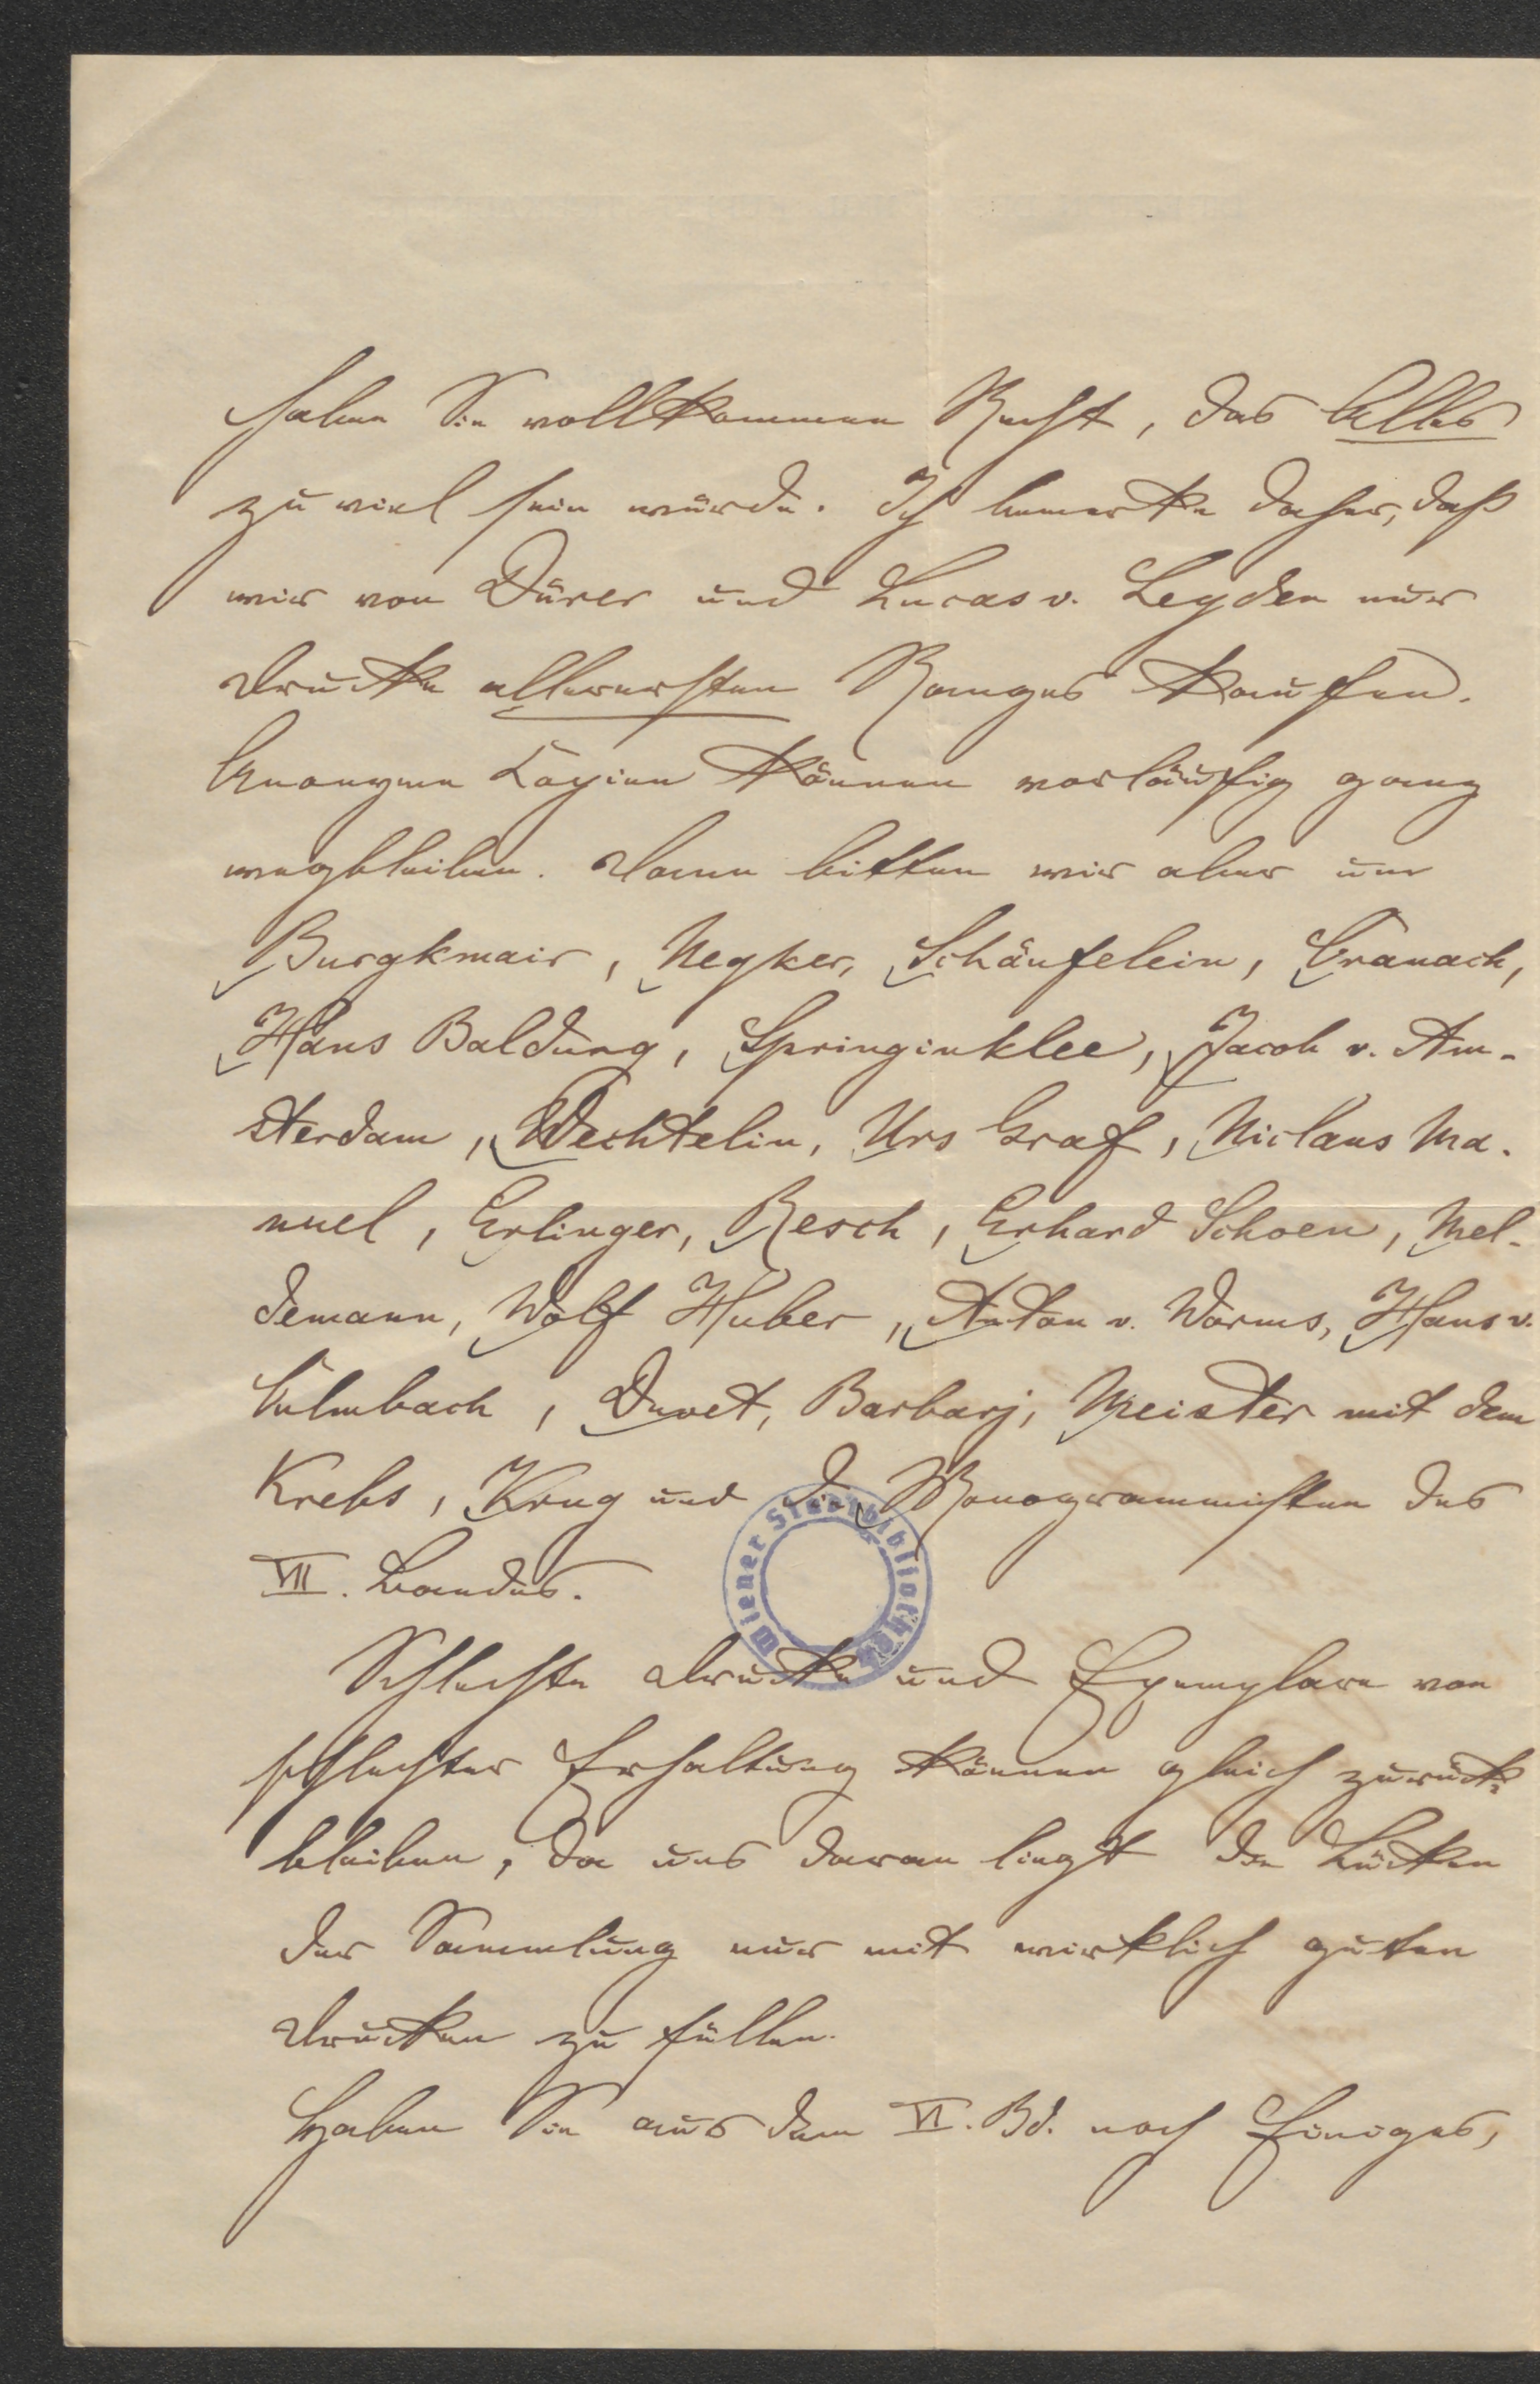 haben Sie vollkommen Recht, das Alles
zu viel sein würde. Ich bemerke daher, daß
wir von Dürer und Lucas v. Leyden nur
Drucke allerersten Ranges kaufen.
Anonyme Copien können vorläufig ganz
wegbleiben. Dann bitten wir aber um
Burgkmair, Negker, Schäufelein, Cranach,
Hans Baldung, Springinklee, Jacob v. Am-
sterdam, Wechtelin, Urs Graf, Niclaus Ma-
nuel, Erlinger, Resch, Erhard Schoen, Mel-
demann, Wolf Huber, Anton v. Worms, Hans v.
Culmbach, Duvet, Barbarj, Meister mit dem
Krebs, Krug und die Monogrammisten des
VII. Bandes.
Wiener Stadtbibliothek
Schlechte Drucke und Exemplare von
schlechter Erhaltung können gleich zurück-
bleiben, da uns daran liegt die Lücken
der Sammlung nur mit wirklich guten
Drucken zu füllen.
Haben Sie aus dem VI. Bd. noch Einiges,